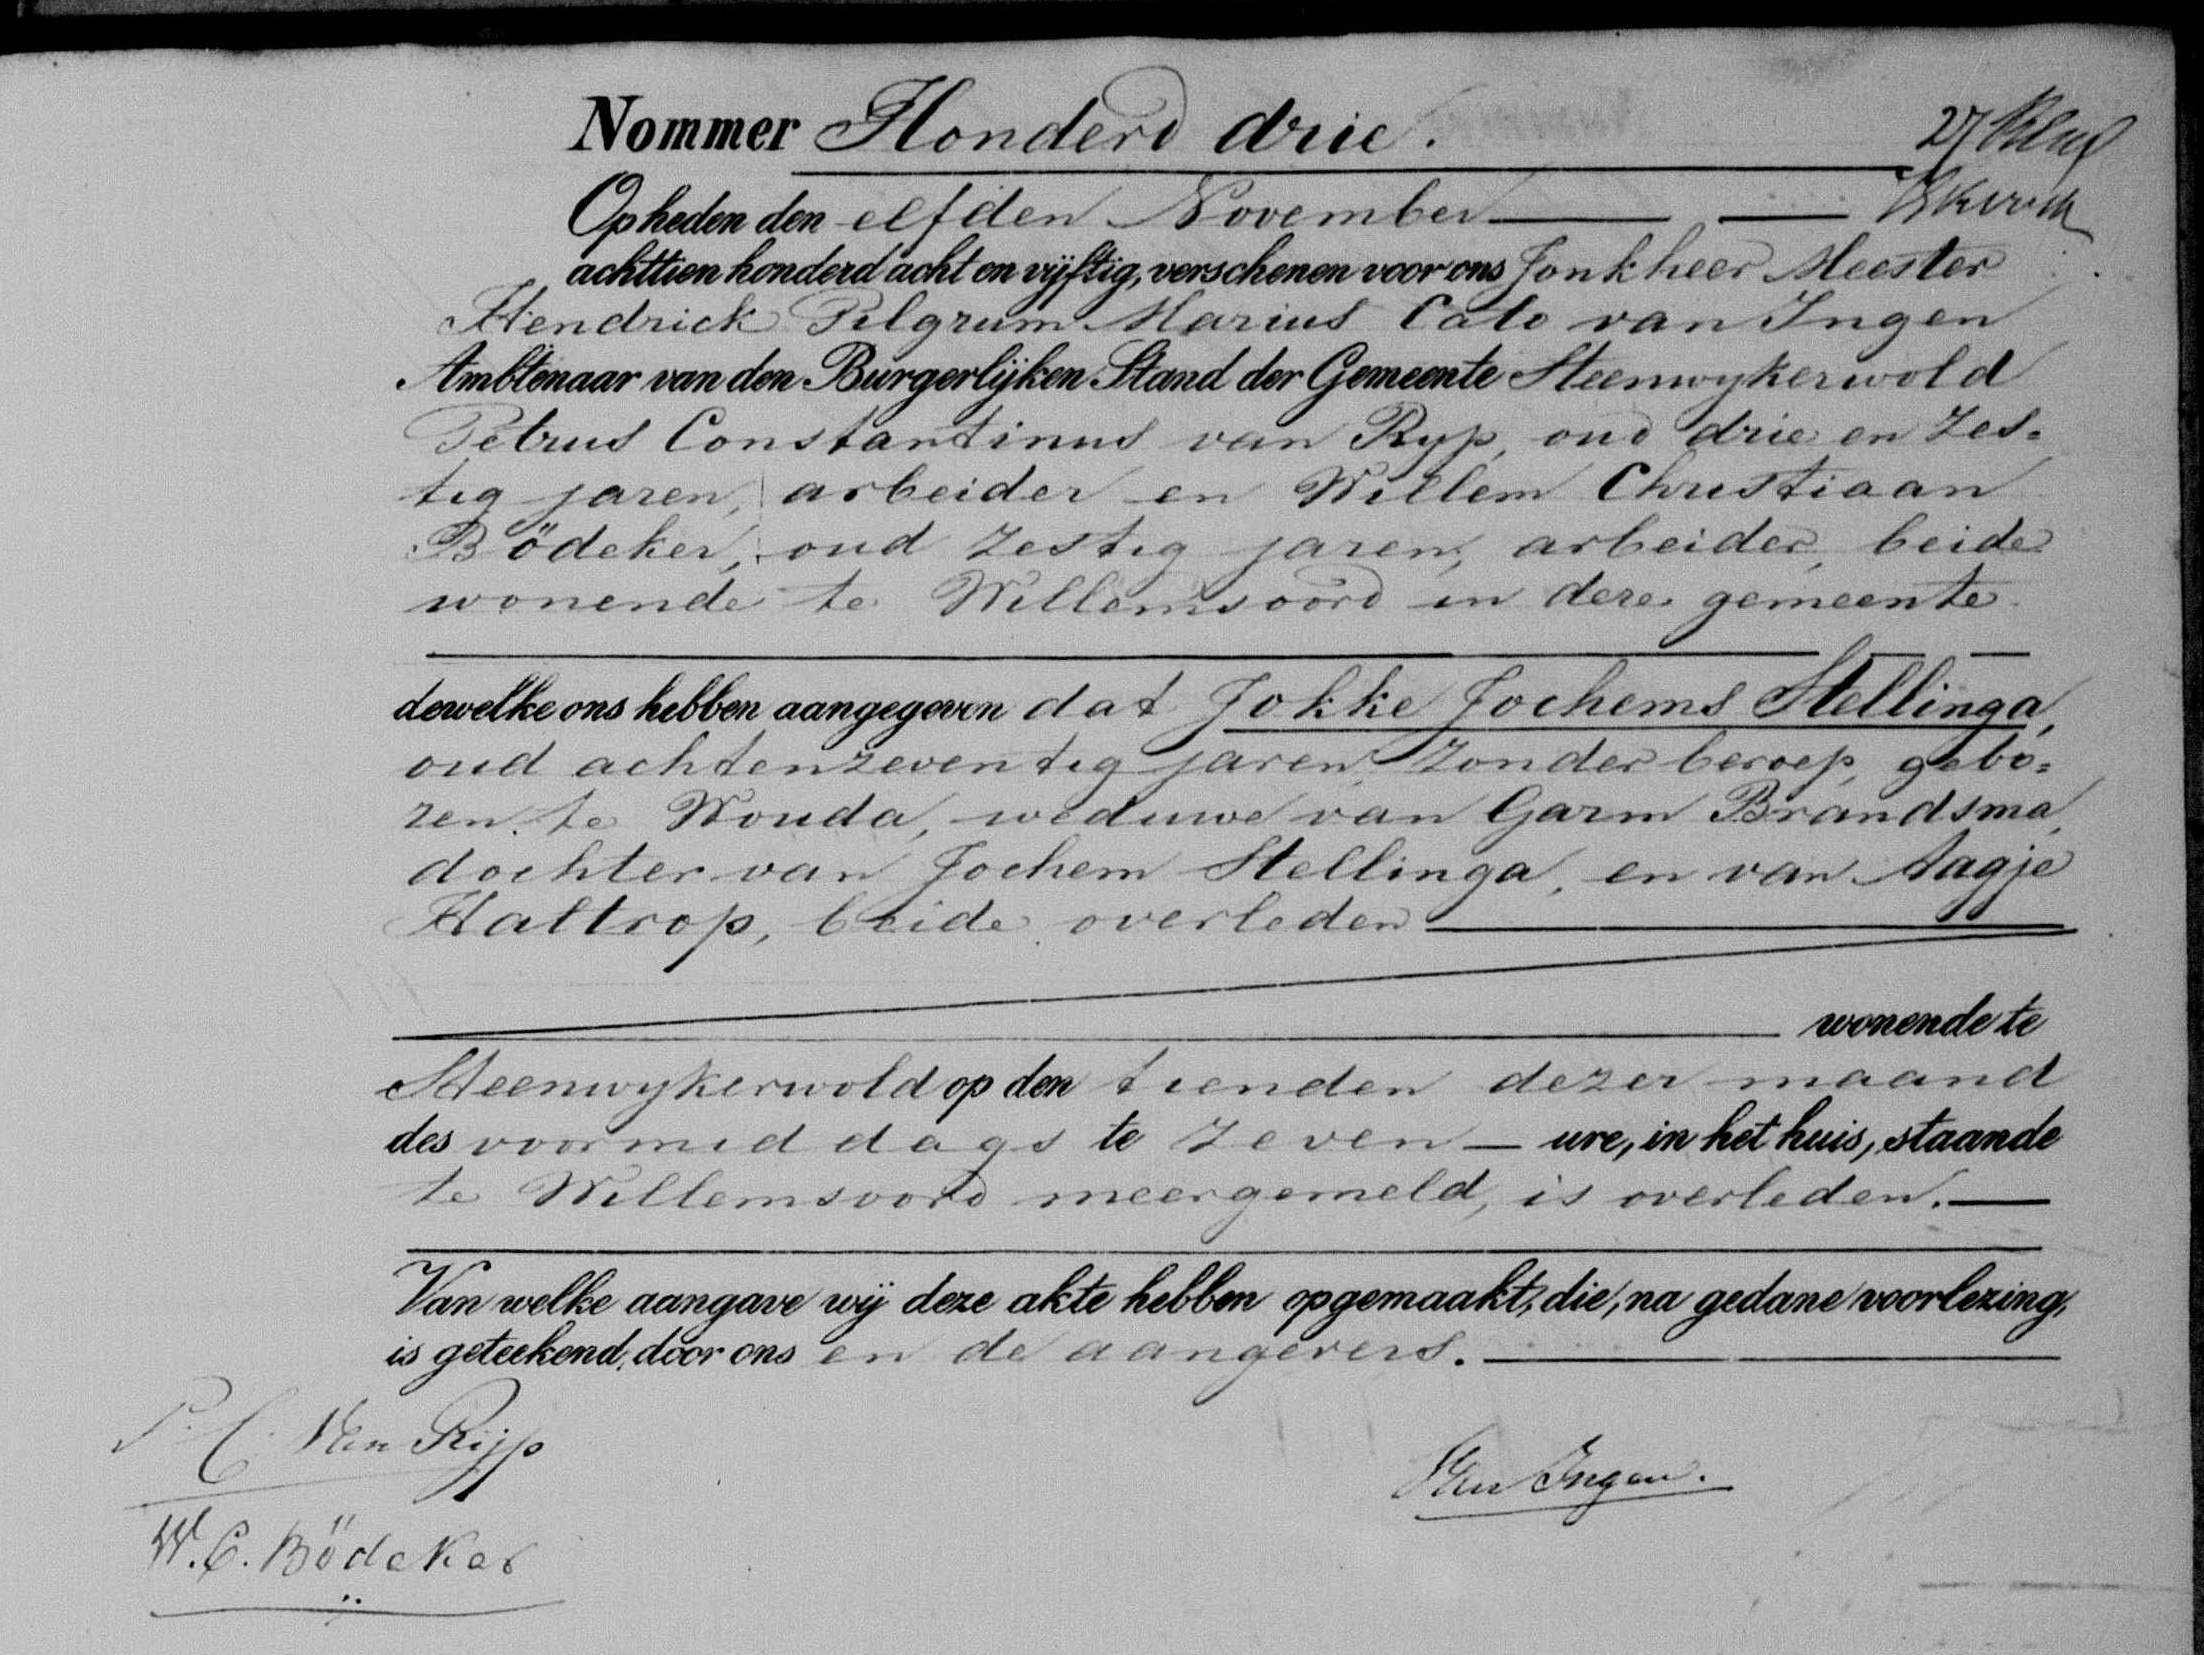 Nommer Honderd drie.
27
Op heden den elfden November
achttien honderd acht en vijftig, verschenen voor ons Jonkheer Meester
Hendrick Pelgrum Marius Cato van Ingen
Ambtenaar van den Burgerlijken Stand der Gemeente Steenwykerwold
Petrus Constantinus van Ryp, oud drie en zes=
tig jaren, arbeider en Willem Christiaan
Bödeker, oud zestig jaren, arbeider, beide
wonende te Willemsoord in deze gemeente.
dewelke ons hebben aangegeven dat Jokke Jochems Stellinga,
oud achtenzeventig jaren, zonder beroep, gebo=
ren te Wouda, weduwe van Garm Brandsma,
dochter van Jochem Stellinga, en van Aagje
Haltrop, beide overleden
wonende te
Steenwykerwold op den tienden dezer maand
des voormiddags te zeven ure, in het huis, staande
te Willemsoord meergemeld, is overleden.
Van welke aangave wij deze akte hebben opgemaakt, die, na gedane voorlezing,
is geteekend, door ons en de aangevers.
P. C. Van Rijp
Van Ingen.
W. C. Bödeker